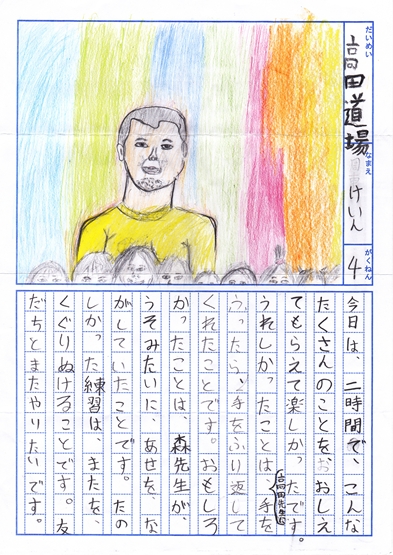 だいめい
高田道場
なまえ
けいん
がくねん
4
今日は、二時間で、こんな
たくさんのことを、おしえ
てもらえて楽しかったです。
うれしかったことは、高田先生に手を
ふったら、手をふり返して
くれたことです。おもしろ
かったことは、森先生が、
うそみたいに、あせを、な
がしていたことです。たの
しかった練習は、またを、
くぐりぬけることです。友
だちとまたやりたいです。